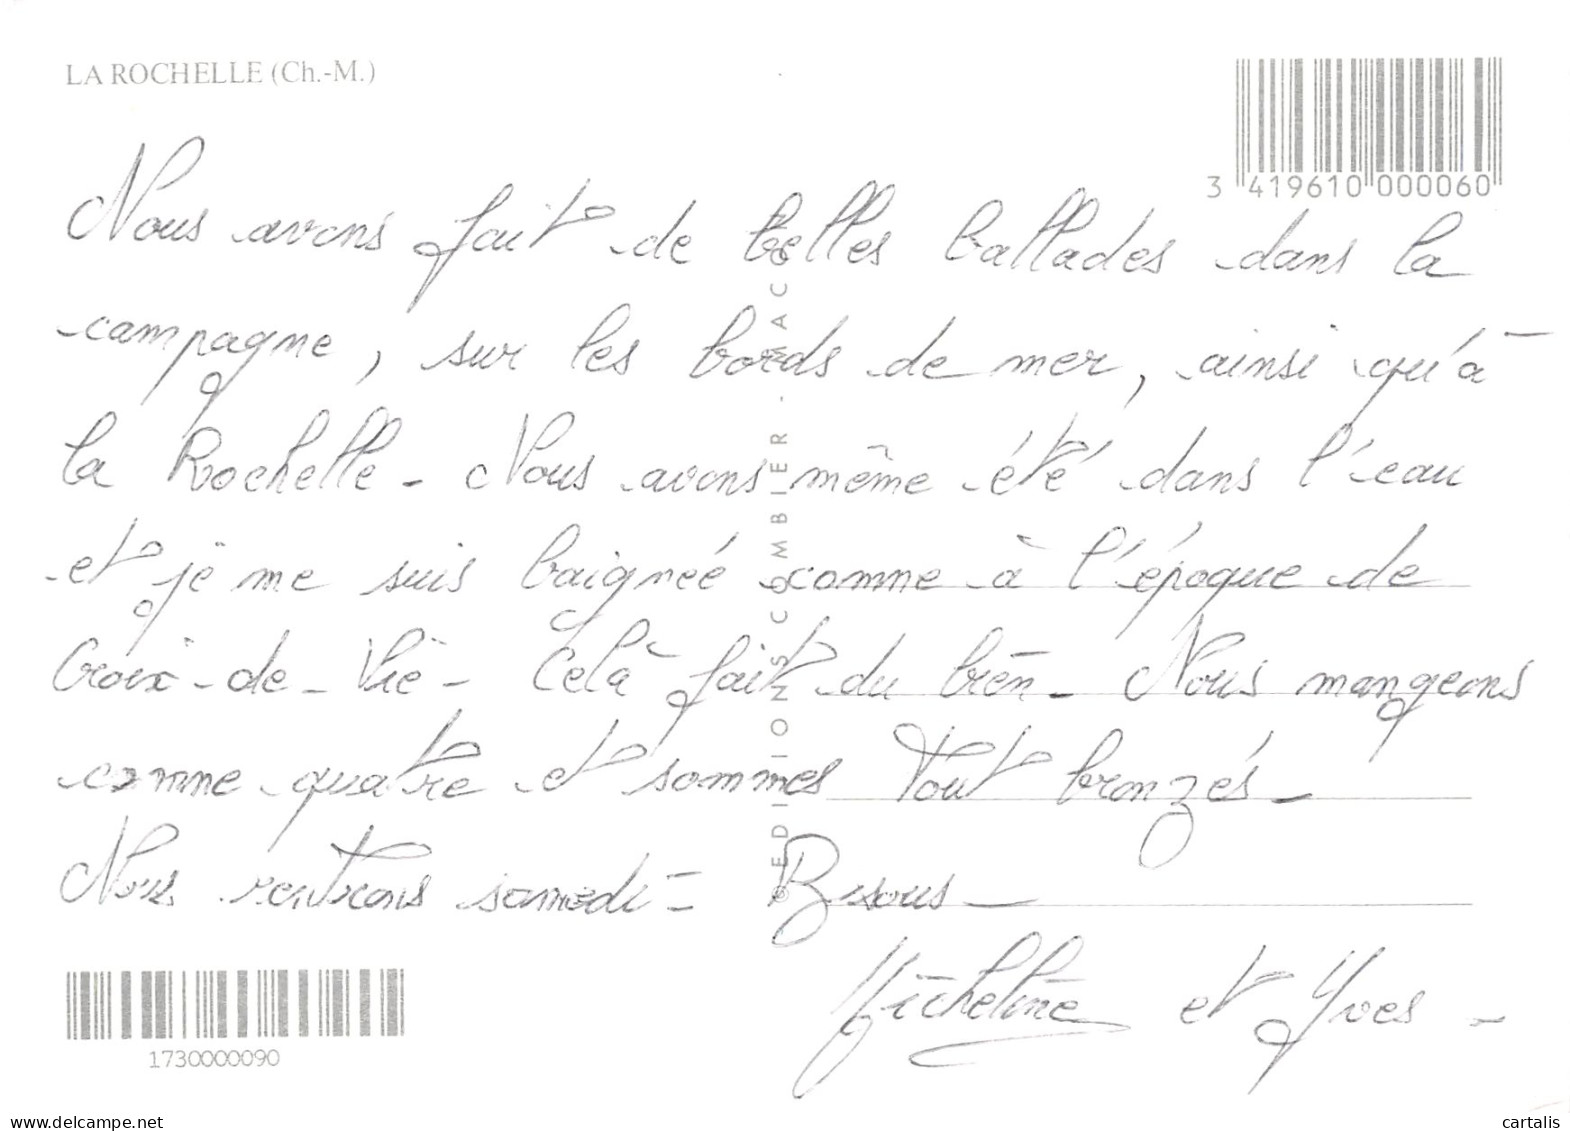 LA ROCHELLE (Ch.-M.)
3 419610 000060
Nous avons fait de belles ballades dans la
campagne, sur les bords de mer, ainsi qu'à
la Rochelle - Nous avons même été dans l'eau
et je me suis baignée comme à l'époque de
Croix-de-Vie - Celà fait du bien - Nous mangeons
comme quatre et sommes tout bronzés -
Nous rentrons samedi - Bisous -
Micheline et Yves -
EDITIONS COMBIER - MACON
1730000090
delcampe.net
cartalis